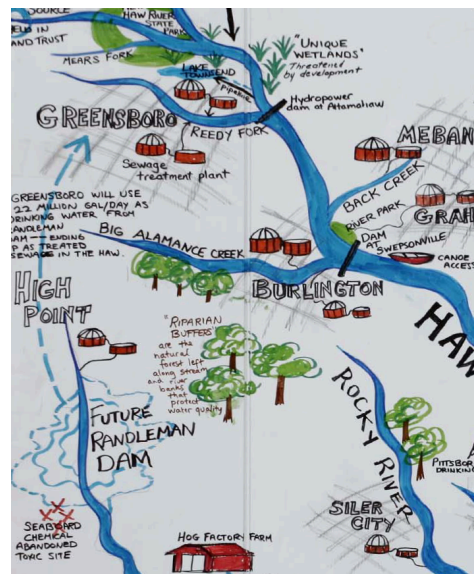 SOURCE
HAW RIVER
STATE
PARK
FIELD IN
LAND TRUST
MEARS FORK
LAKE
TOWNSEND
Pipeline
"UNIQUE
WETLANDS"
Threatened
by development
Hydropower
dam at Altamahaw
GREENSBORO
REEDY FORK
Sewage
treatment plant
MEBAN
BACK CREEK
GRAH
RIVER PARK
DAM
AT
SWEPSONVILLE
CANOE
ACCESS
GREENSBORO WILL USE
22 MILLION GAL/DAY AS
DRINKING WATER FROM
RANDLEMAN
DAM — ENDING
UP AS TREATED
SEWAGE IN THE HAW.
BIG ALAMANCE CREEK
BURLINGTON
HAW
HIGH
POINT
"RIPARIAN
BUFFERS"
are the
natural
forest left
along stream
and river
banks
that
protect
water quality
FUTURE
RANDLEMAN
DAM
ROCKY RIVER
PITTSBOR
DRINKING
SEABOARD
CHEMICAL
ABANDONED
TOXIC SITE
HOG FACTORY FARM
SILER
CITY